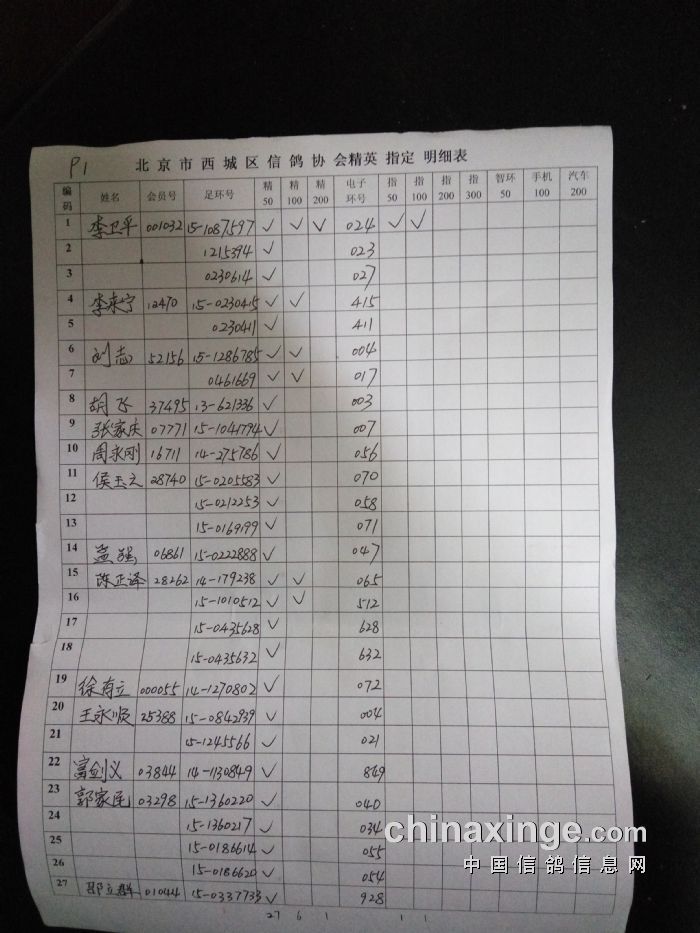 P1 北京市西城区信鸽协会精英 指定 明细表
编码 姓名 会员号 足环号 精50 精100 精200 电子环号 指50 指100 指200 指300 智环50 手机100 汽车200
1 李卫平 001032 15-1087597 ✓ ✓ ✓ 024 ✓ ✓
2 1215394 ✓ 023
3 0230614 ✓ 027
4 李来宁 12470 15-0230415 ✓ ✓ 415
5 0230411 ✓ 411
6 刘志 52156 15-1286785 ✓ ✓ 004
7 0461669 ✓ ✓ 017
8 胡飞 37495 13-621336 ✓ 003
9 张家庆 07771 15-1041794 ✓ 007
10 周永刚 16711 14-275786 ✓ 056
11 侯玉 28740 15-0205583 ✓ 070
12 15-0212253 ✓ 058
13 15-0169199 ✓ 071
14 孟强 06861 15-0222888 ✓ 047
15 陈正译 28262 14-179238 ✓ ✓ 065
16 15-1010512 ✓ ✓ 512
17 15-0435628 ✓ 628
18 15-0435632 ✓ 632
19 徐有立 000055 14-1270802 ✓ 072
20 王永顺 25388 15-0842939 ✓ 004
21 15-1245566 ✓ 021
22 富剑义 03844 14-1130849 ✓ 849
23 郭家民 03298 15-1360220 ✓ 040
24 15-1360217 ✓ 034
25 15-0186614 ✓ 055
26 15-0186620 ✓ 054
27 邵立群 01044 15-0337733 ✓ 928
27 6 1 1 1
chinaxinge.com
中国信鸽信息网